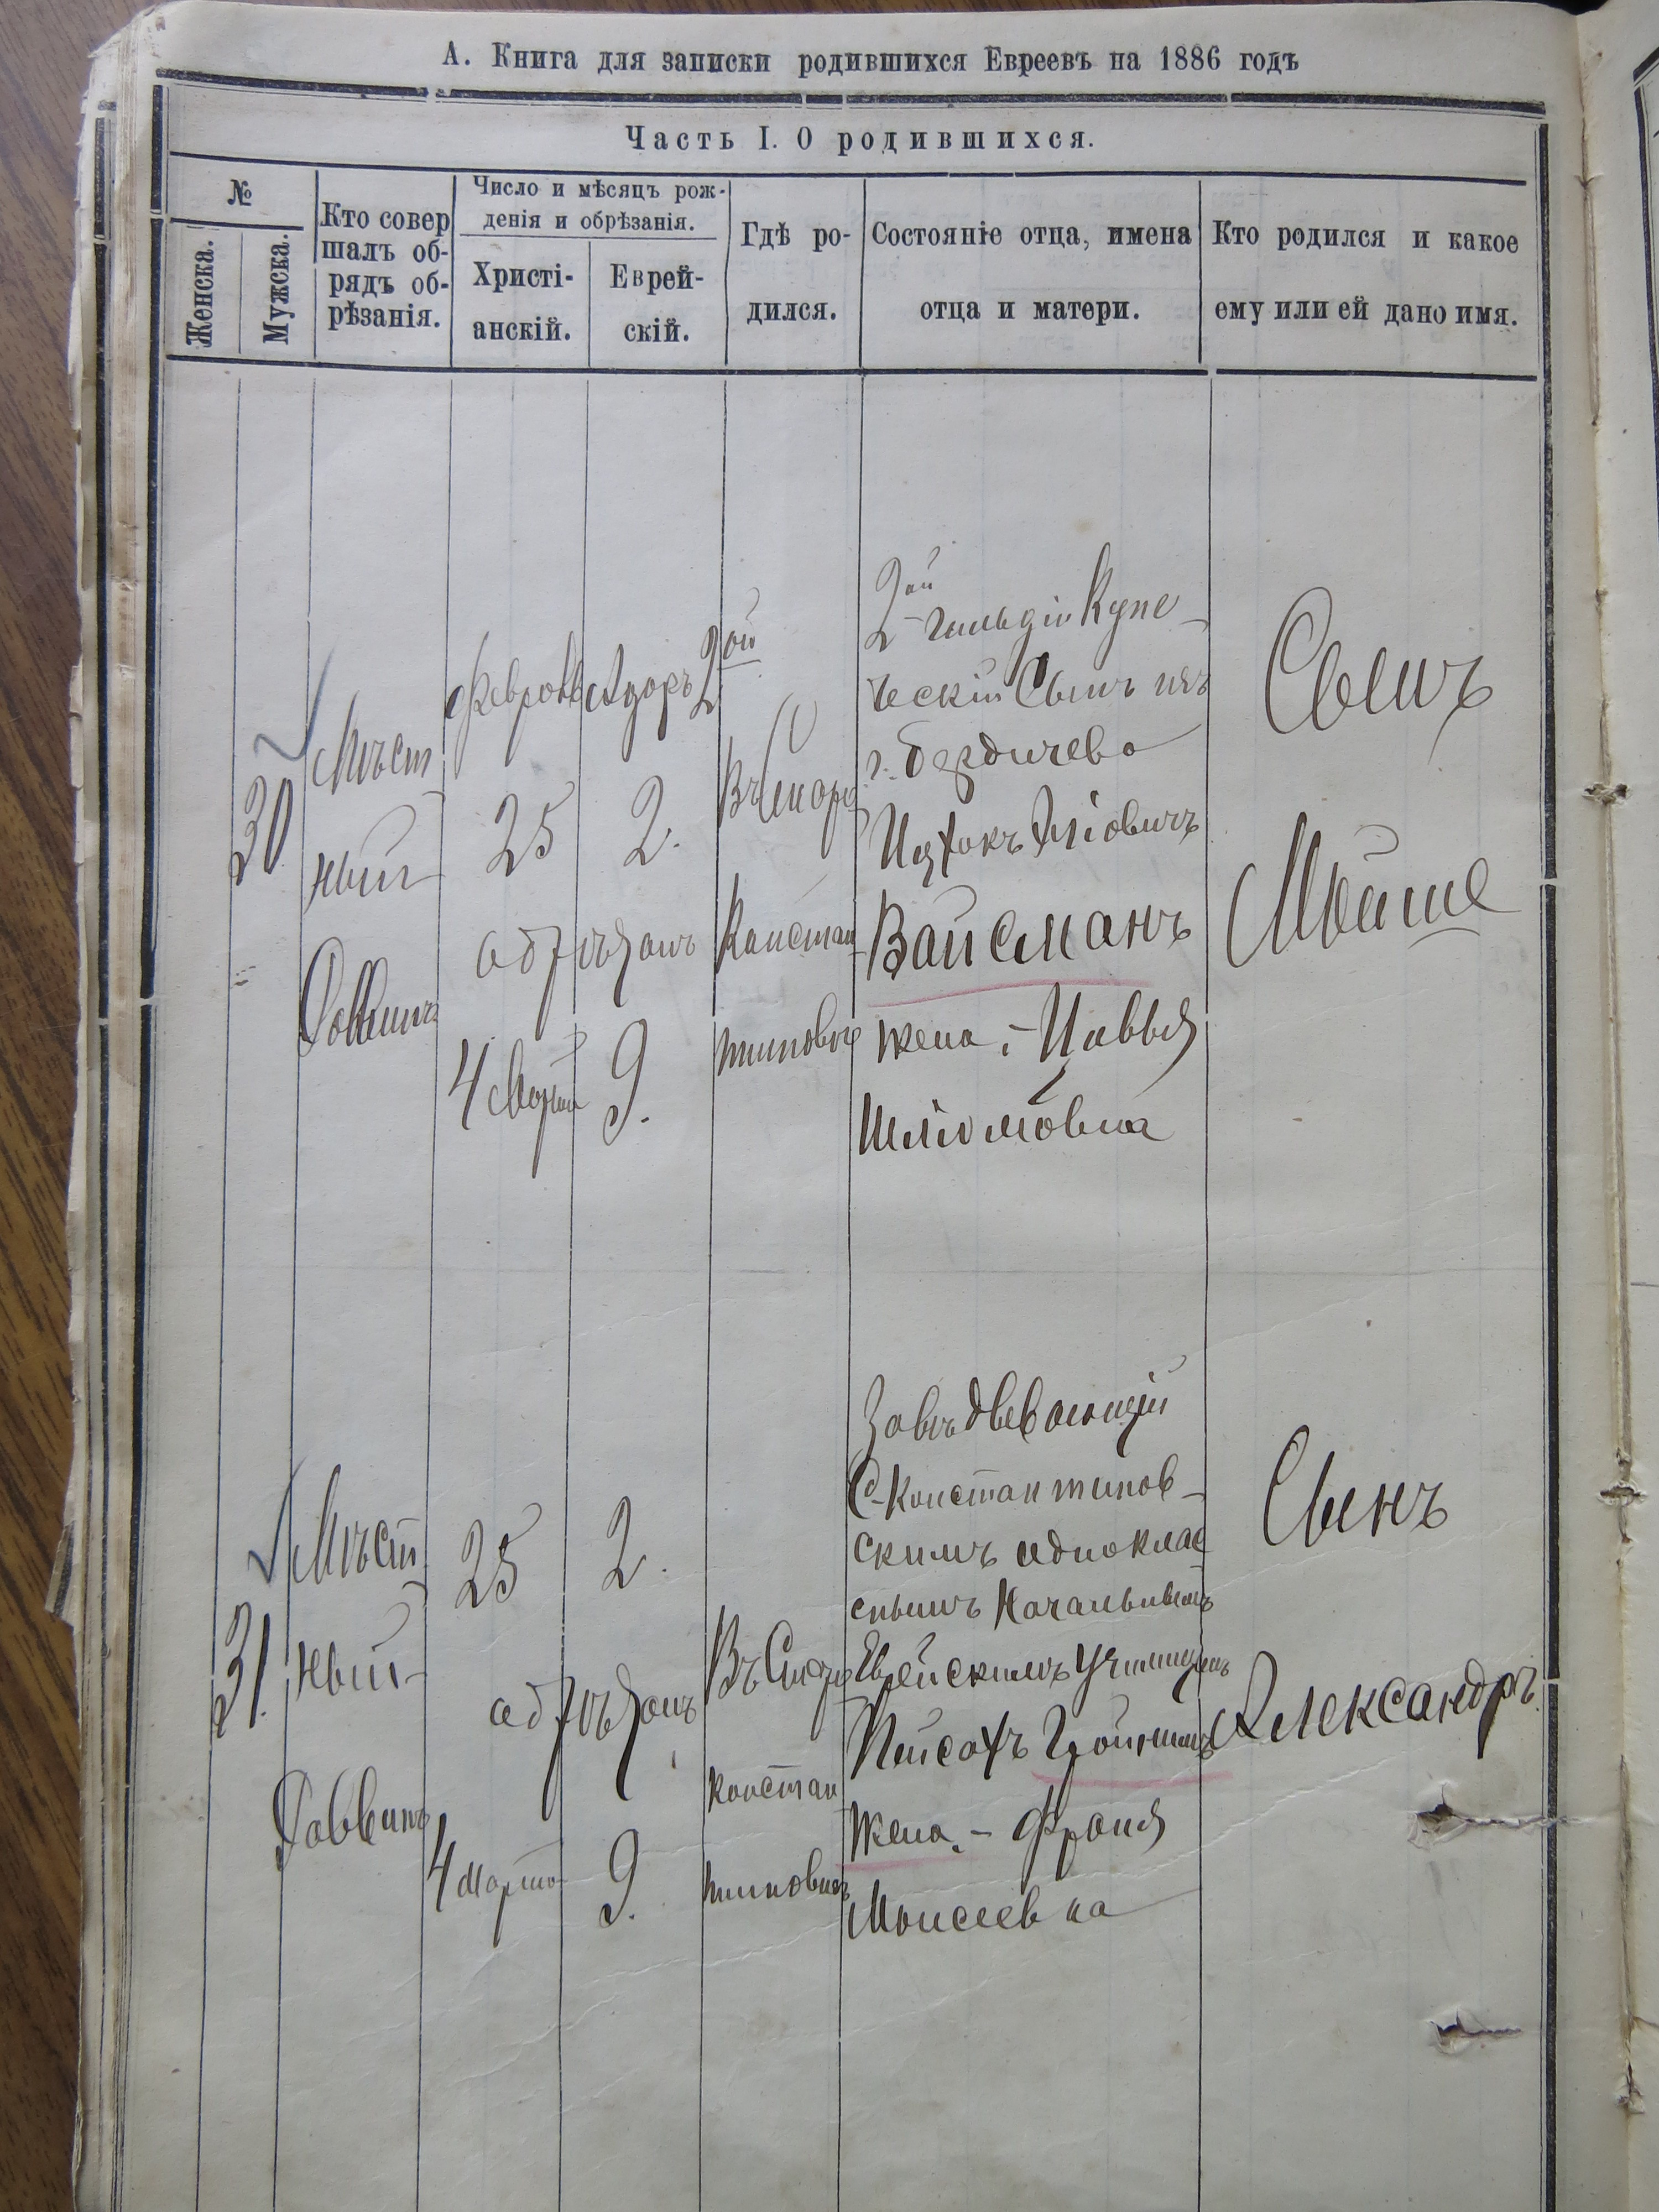 А. Книга для записки родившихся Евреевъ на 1886 годъ
Часть I. О родившихся.
№
Женска.
Мужска.
Кто совер
шалъ об-
рядъ об-
рѣзанія.
Число и мѣсяцъ рож-
денія и обрѣзанія.
Христі-
анскій.
Еврей-
скій.
Гдѣ ро-
дился.
Состояніе отца, имена
отца и матери.
Кто родился и какое
ему или ей дано имя.
30
Мѣст
ный
Раввинъ
Февраль
25
обрѣзанъ
4 Марта
Адаръ 2ой
2.
9.
Въ Старо
Констан
тиновѣ
2ой гильдіи Купе-
ческій Сынъ изъ
г. Бердичева
Ицхокъ
Вайсманъ
жена:- Цивья
Шліомовна
Сынъ
Мойше
31.
Мѣст
ный
Раввинъ
25
обрѣзанъ
4 Марта
2.
9.
Въ Старо
Констан
тиновѣ
Завѣдывающій
С-Константинов-
скимъ однокла
снымъ Начальнымъ
Еврейскимъ училищемъ
Пейсахъ
Жена.- Франя
Моисеевна
Сынъ
Александръ.